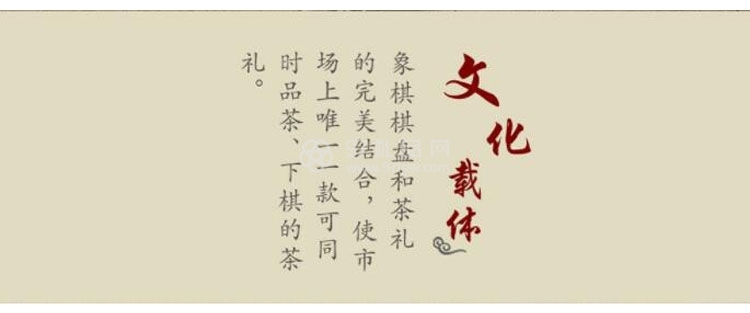 文化载体
象棋棋盘和茶礼
的完美结合，使市
场上唯一一款可同
时品茶、下棋的茶
礼。